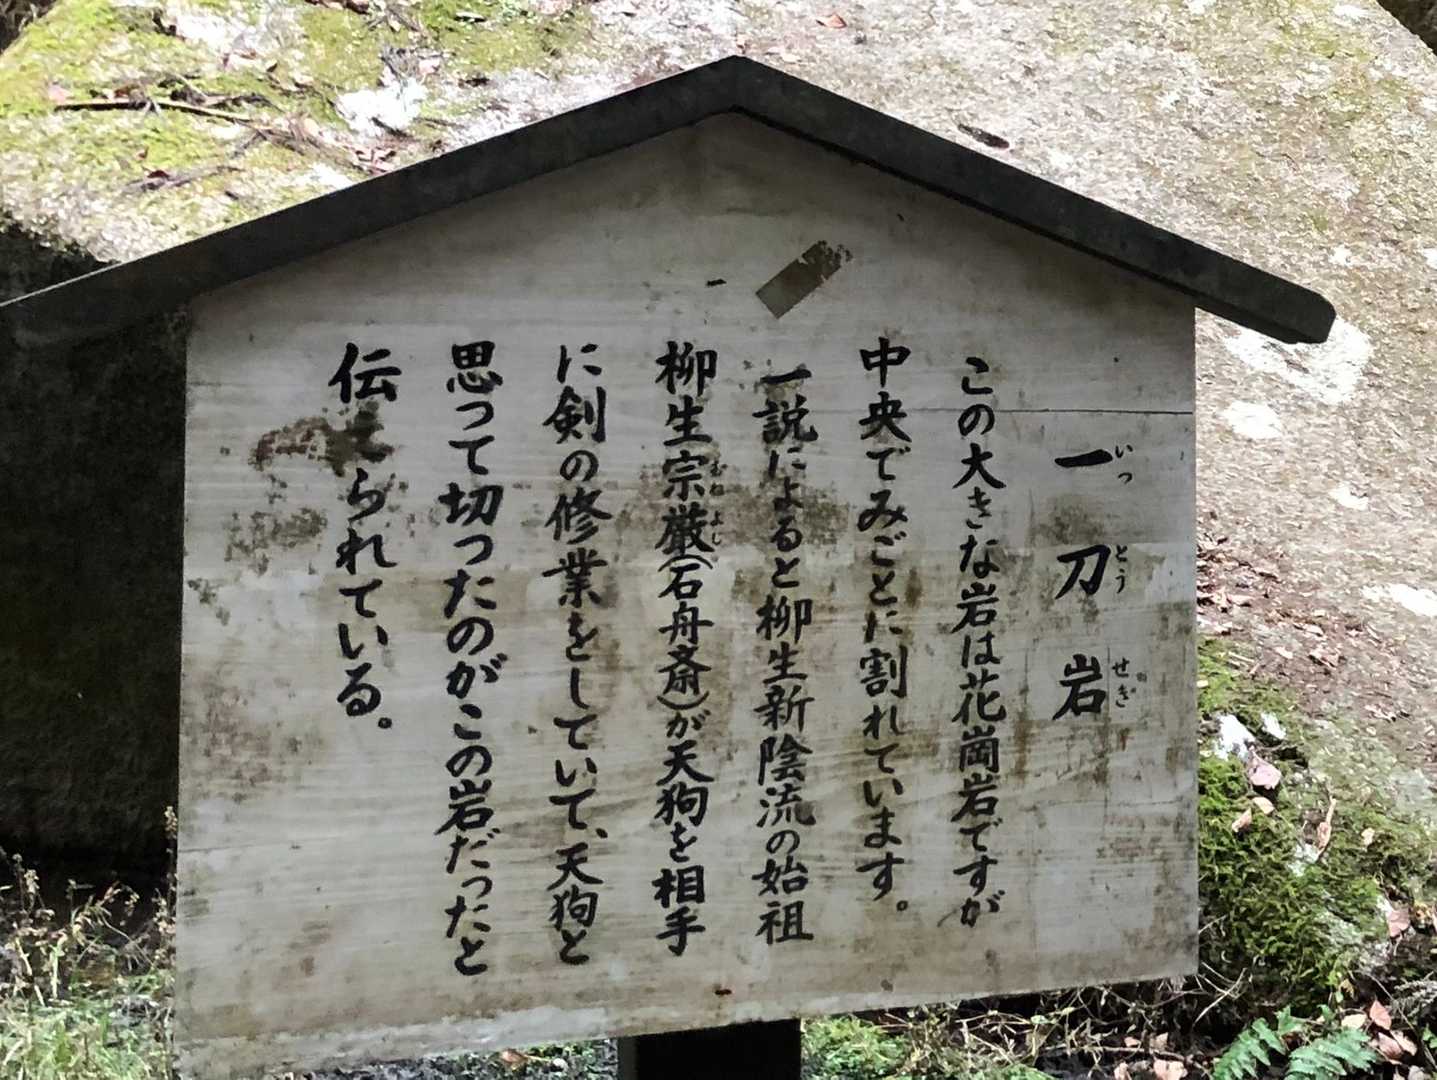 一刀岩
いっ とう せき
この大きな岩は花崗岩ですが
中央でみごとに割れています。
一説によると柳生新陰流の始祖
柳生宗厳(石舟斎)が天狗を相手
むね よし
に剣の修業をしていて、天狗と
思って切ったのがこの岩だったと
伝えられている。